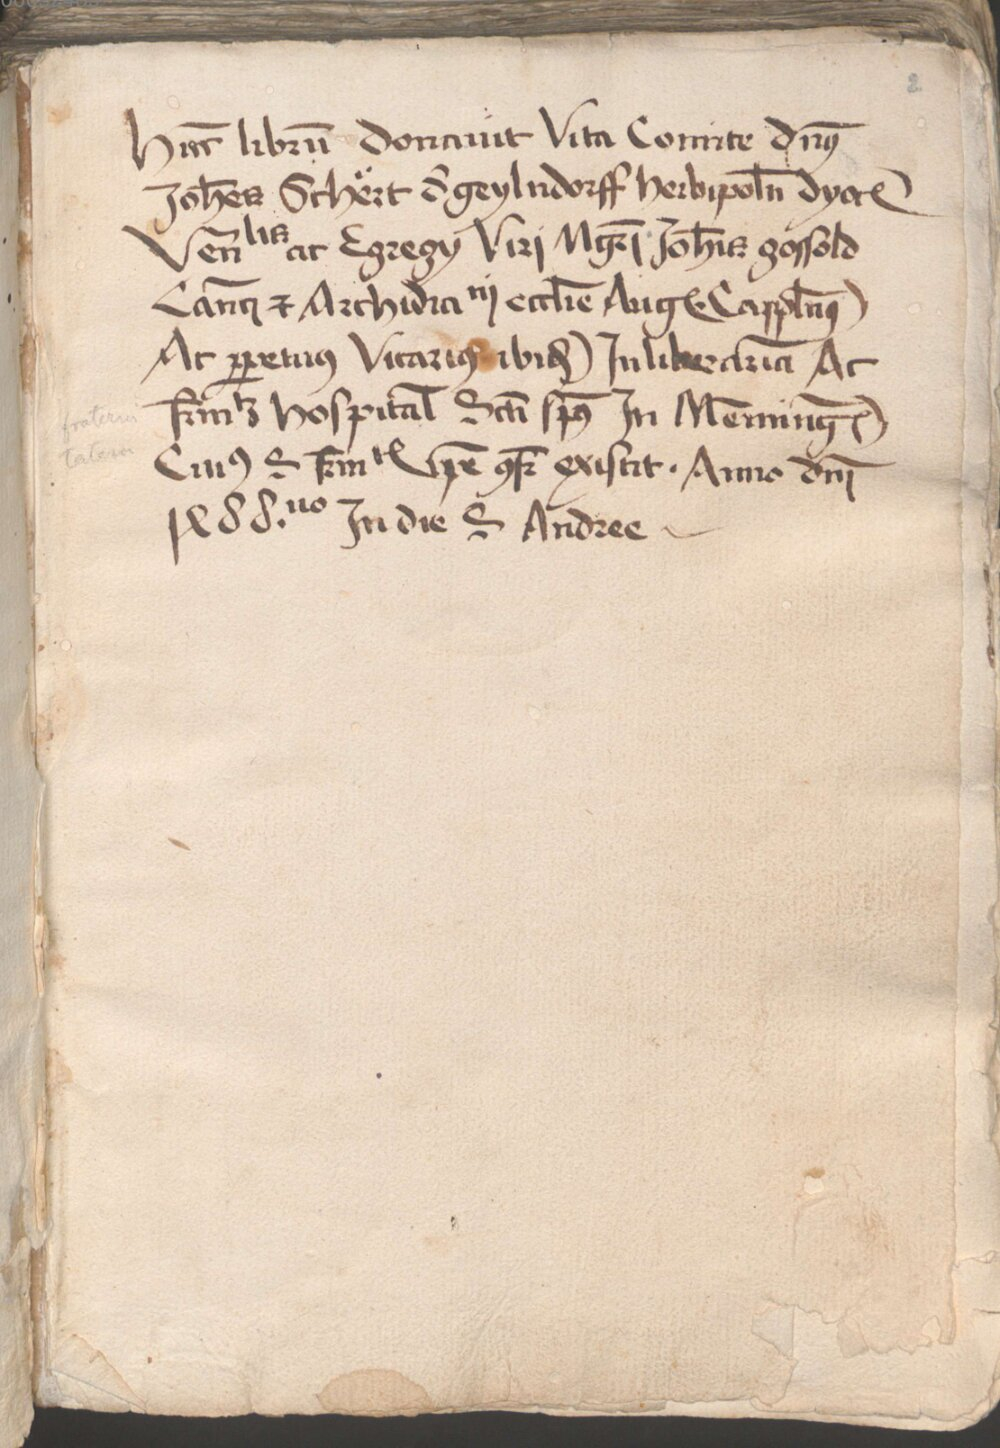 2
Hūc librū donauit Vita Comite dn̄s
Joh̄es Schërt d̄ geylndorff herbipoln̄ dyoc
Ven̄lis ac Egregy Viri Mgr̄i Joh̄is gossold
Can̄ci ⁊ Archidiani eccl̄ie Aug Cappln̄s
Ac ꝑpetuus Vicarius ibid In liberariā Ac
frn̄itz Hospital Scti spūs In Memming
Cuius S frn̄itatis existit . Anno dn̄i
1488.uo In die S Andree
fraterni
tatem